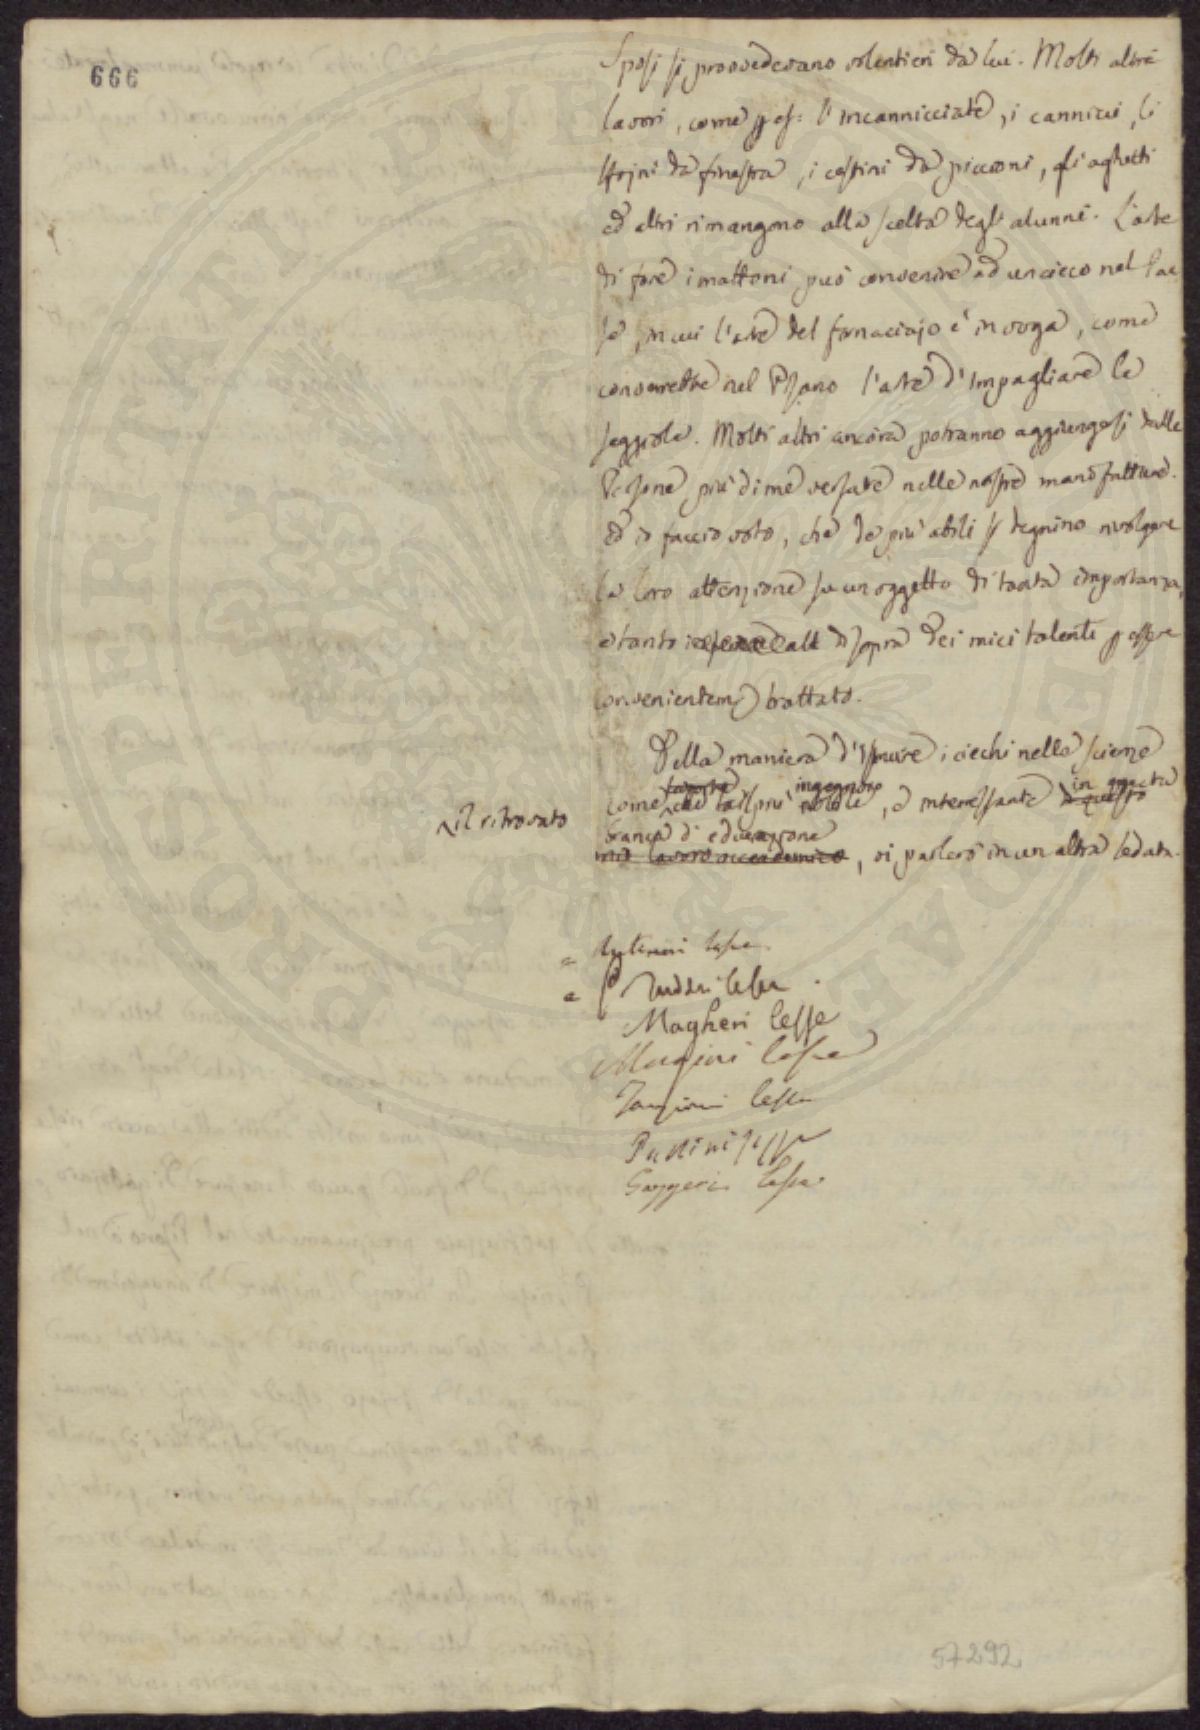 666
Sposi si provvedevano volentieri da lui. Molti altri
lavori, come p es: l'incannicciate, i cannicci, li
stojni da finestra, i cestini da piccioni, gli aghetti
ed altri rimangono alla scelta degli alunni. L'arte
di fare i mattoni può convenire ad un cieco nel Pae
se, in cui l'arte del fornaciajo è in voga, come
converrebbe nel Pisano l'arte d'impagliare le
seggiole. Molti altri ancora potranno aggiungersi dalle
Persone più di me versate nelle nostre manifatture.
Ed io faccio voto, che le più abili si degnino rivolgere
la loro attenzione su un oggetto di tanta importanza,
e tanto al di sopra dei miei talenti p essere
convenientem) trattato.
Della maniera d'istruire i ciechi nelle scienze
come il ritrovato più ingegnoso nobile, e interessante in questa
branca di educazione
mio lavoro accademico, vi parlerò in un altra seduta.
= lesse
= P Taddei lesse.
Magheri lesse
Mugini lesse
lesse
lesse
Gazzeri lesse
57292
PROSPERITATI PUBLICAE